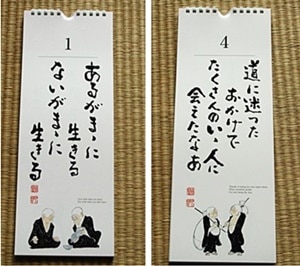 1
あるがまゝに
生きる
ないがまゝに
生きる
4
道に迷った
おかげで
たくさんのいゝ人に
会えたなあ